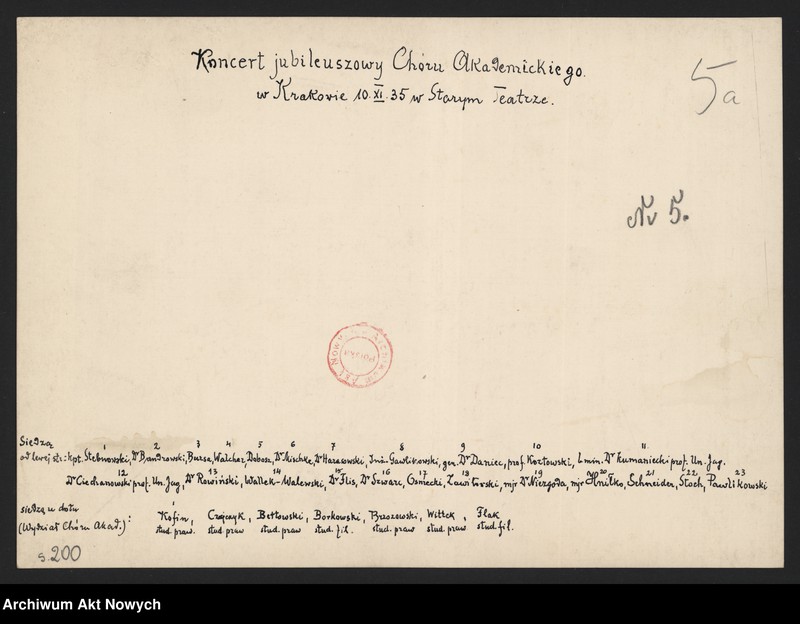 Koncert jubileuszowy Chóru Akademickiego.
w Krakowie 10.XI.35 w Starym Teatrze.
5a
Nr 5.
Siedzą
1 2 3 4 5 6 7 8 9 10 11
od lewej str.: kpt. Stebnowski, Dr Bandrowski, Bursa, Walchar, Dobosz, Dr Mischke, Dr Harasowski, Inż. Gawlikowski, gen. Dr Daniec, prof. Kozłowski, b. min. Dr Kumaniecki prof. Un. Jag.
12 13 14 15 16 17 18 19 20 21 22 23
Dr Ciechanowski prof. Un. Jag, Dr Rowiński, Wallek-Walewski, Dr Flis, Dr Szwarc, Osniecki, Zawitorski, mjr Dr Niezgoda, mjr Hniłko, Schneider, Stoch, Pawlikowski
siedzą u dołu
(Wydział Chóru Akad.): Kofin, Czajczyk, Bettowski, Borkowski, Brzozowski, Wittek, Flak
stud. praw. stud. praw stud. praw stud. fil. stud. praw stud. praw stud. fil.
s. 200
Archiwum Akt Nowych